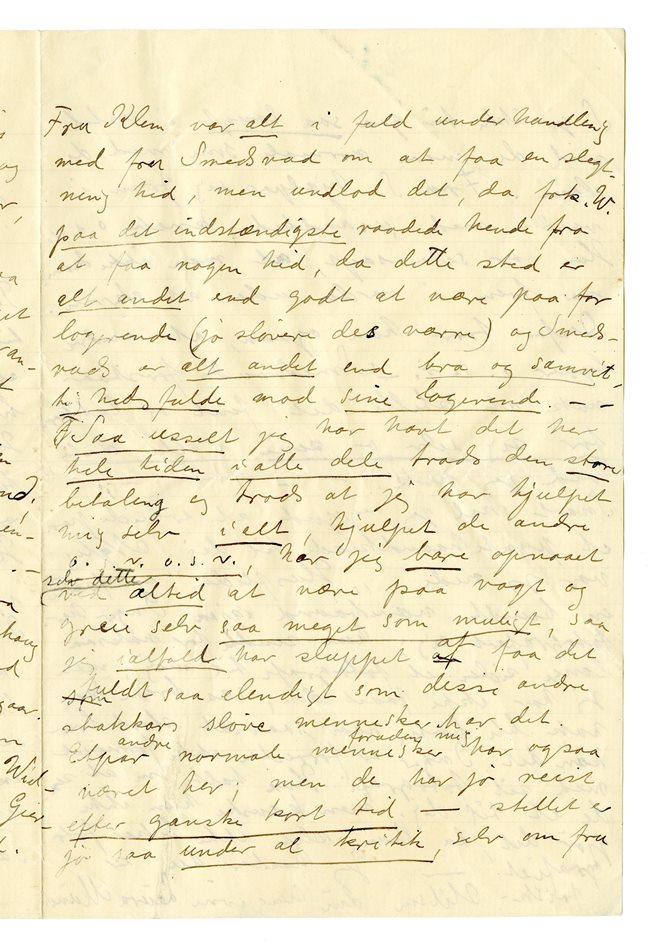 Fru Klem var alt i fuld underhandling
med fru Smedsvad om at faa en slegt-
ning hid, men undlod det, da frk. W.
paa det indstændigste raadede hende fra
at faa nogen hid, da dette sted er
alt andet end godt at være paa for
logerende (jo sløvere des værre) og Smeds-
vads er alt andet end bra og samvit-
tighedsfulde mod sine logerende. – –
Saa usselt jeg har havt det her
hele tiden i alle dele trods den store
betaling og trods at jeg har hjulpet
mig selv i alt, hjulpet de andre
o. s. v. o. s. v., har jeg bare opnaaet
selv dette
ved altid at være paa vagt og
greie selv saa meget som muligt, saa
jeg ialfald har sluppet at faa det
som fuldt saa elendigt som disse andre
stakkars sløve mennesker har det.
Etpar andre normale mennesker foruden mig har ogsaa
været her; men de har jo reist
efter ganske kort tid – stellet er
jo saa under al kritik, selv om fru
og
r,
et
ran-
t
nd.
én-
ra
hang
d
gaar.
n
Wid-
Gier-
t.